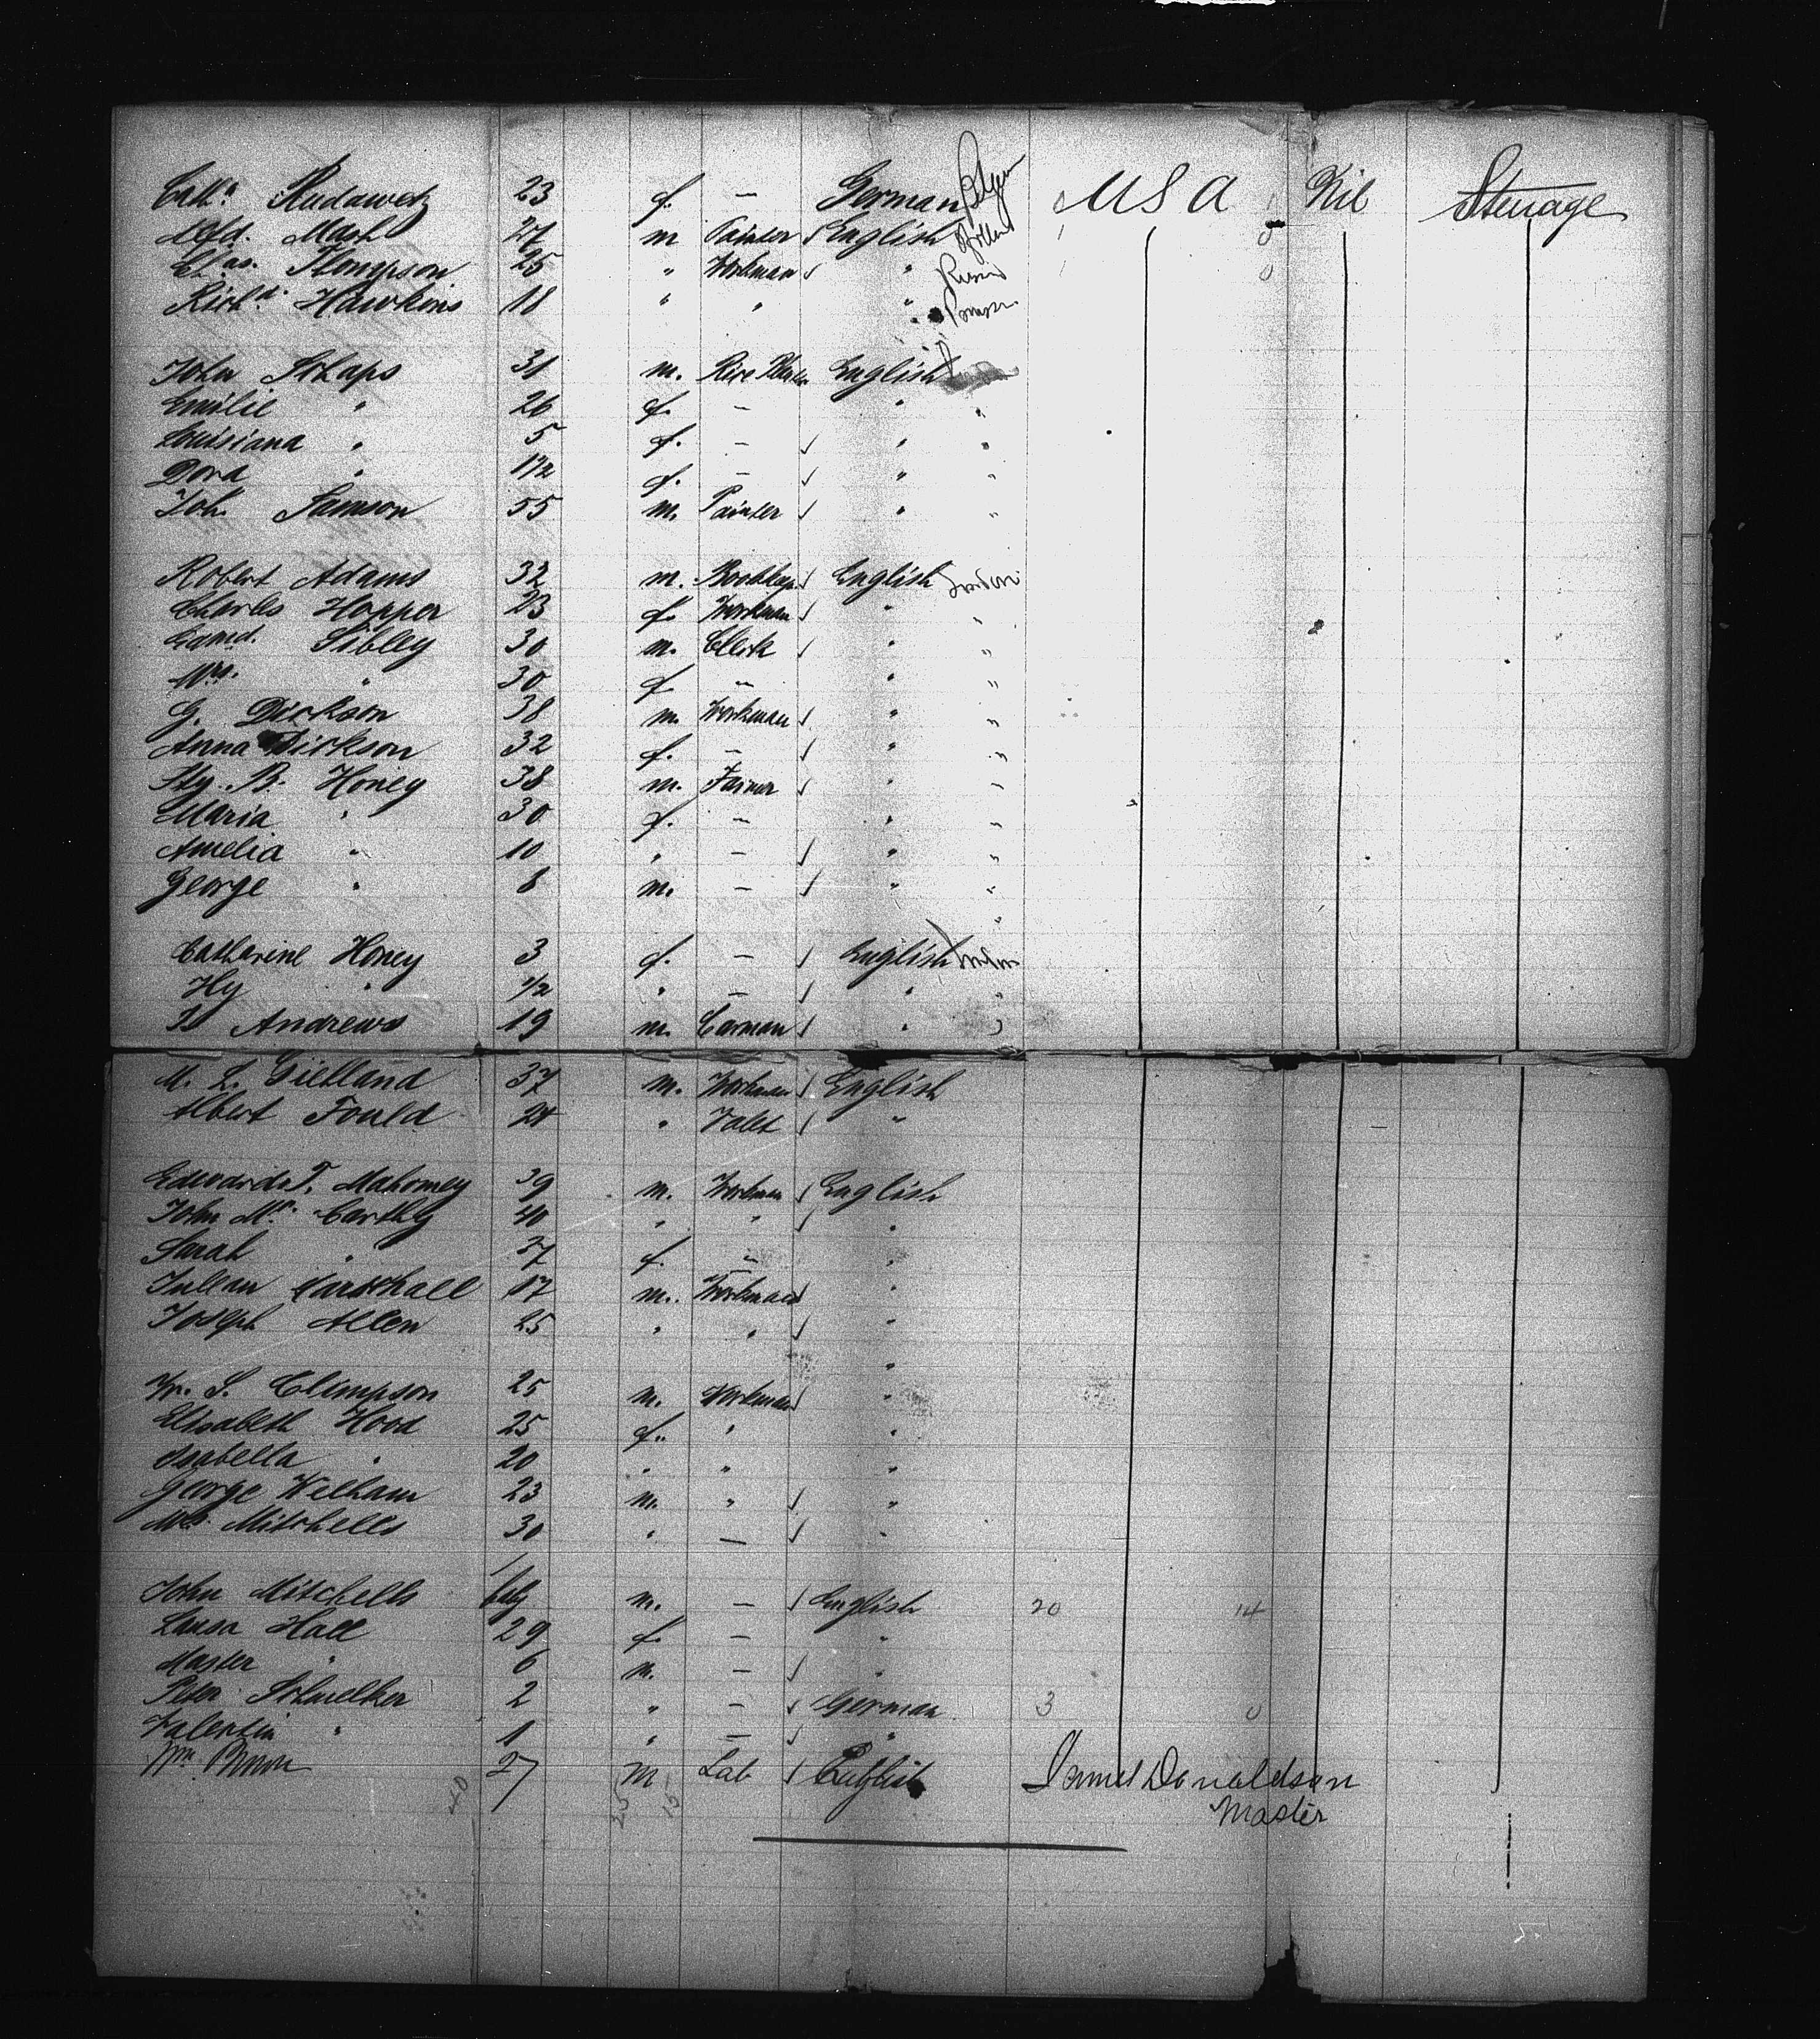 Cath. Rudawetz 23 f. — German USA Nil Steerage
Alfd. Mash 27 m Painter English Holland
Chas. Thompson 25 " Workman " Russia
Richd. Hawkins 18 " " "
John Schaps 31 m. English
Emilie " 26 f. — " "
Louisiana " 5 f. — " "
Dora " 1 1/2 f. — " "
Joh. Samson 55 m. Painter " "
Robert Adams 32 m. English London
Charles Hopper 23 f. Workman " "
Edmd. Sibley 30 m. Clerk " "
Mrs. " 30 f. — " "
G. Dickson 38 m. Workman " "
Anna Dickson 32 f. — " "
Hy. B. Honey 38 m. " "
Maria " 30 f. — " "
Amelia " 10 " — " "
George " 8 m. — " "
Catharine Honey 3 f. — English London
Hy " 1/2 " — " "
Andrews 19 m. Carman " "
M. L. 37 m. Workman English
Albert Fould 24 " Valet "
Edward T. Mahomey 39 m. Workman English
John Mc. Carthy 40 " " "
Sarah " 37 f. — "
17 m. Workman "
Joseph Allen 25 " " "
"
W. S. Climpson 25 m. Workman "
Elisabeth Hood 25 f. " "
Isabella " 20 " " "
George Welham 23 m. " "
Mitchells 30 " — "
John Mitchells baby m. — English 20 14
Laura Hall 29 f. — "
Master " 6 m. — "
Peter Schmelker 2 " — German 3 0
Valentin " 1 " — "
Wm. Brown 27 M Lab English James Donaldson
Master
40 25 15